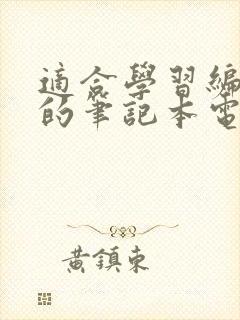 適合學習編
的筆記本電
黃鎮東